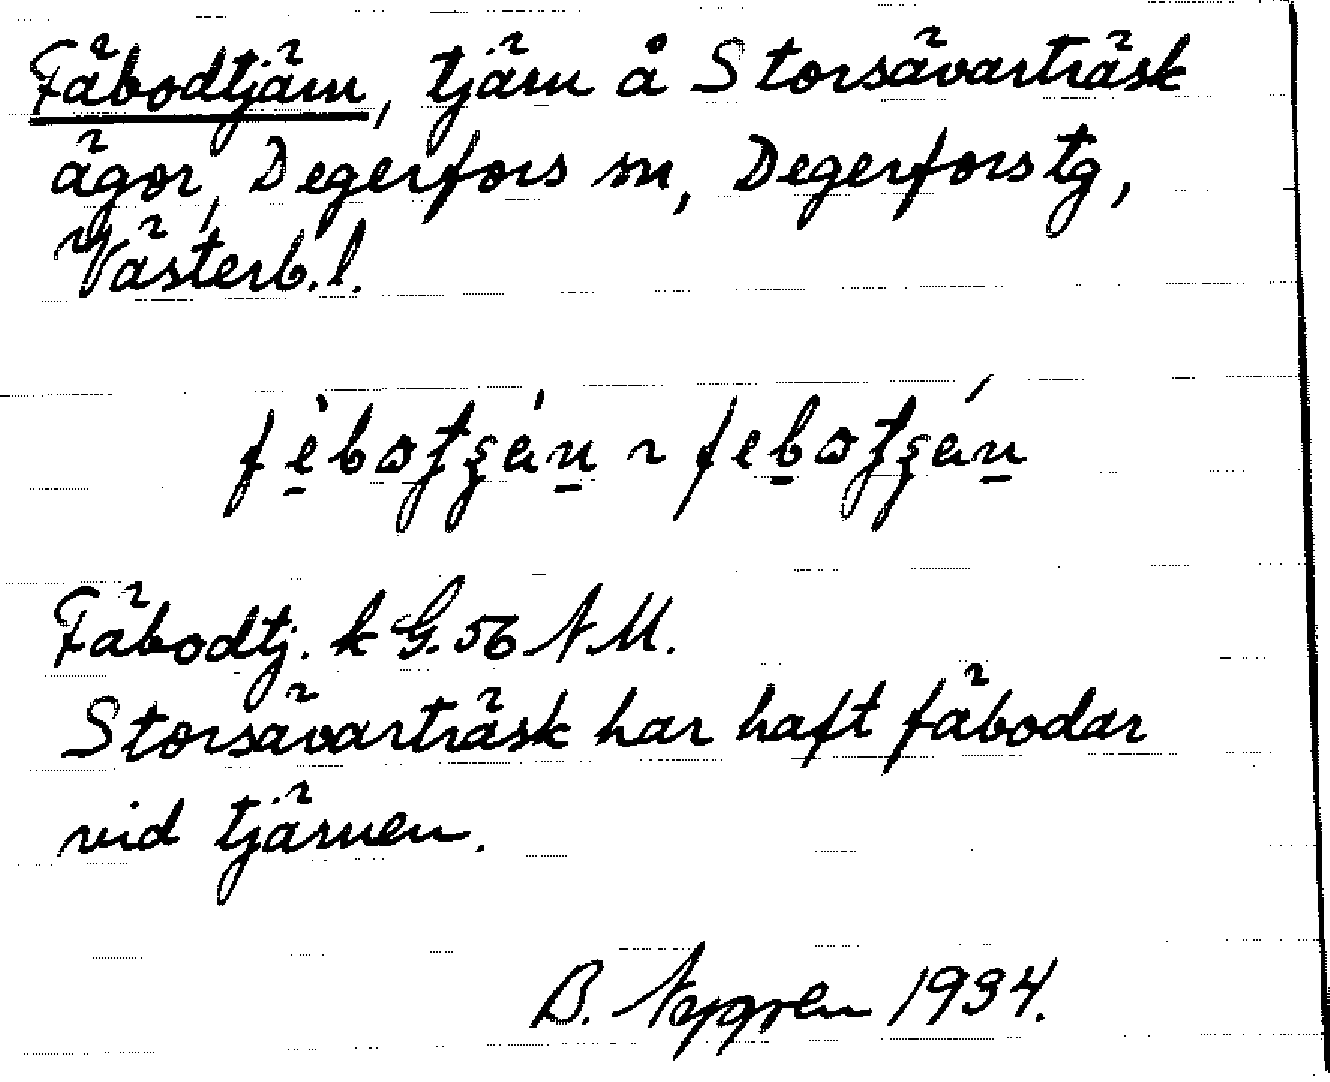 Fäbodtjärn, tjärn å Storsävarträsk
ägor, Degerfors sn, Degerfors tg,
Västerb. l.
Fäbodtj. k G. 56 N M.
Storsävarträsk har haft fäbodar
vid tjärnen.
B. Nygren 1934.